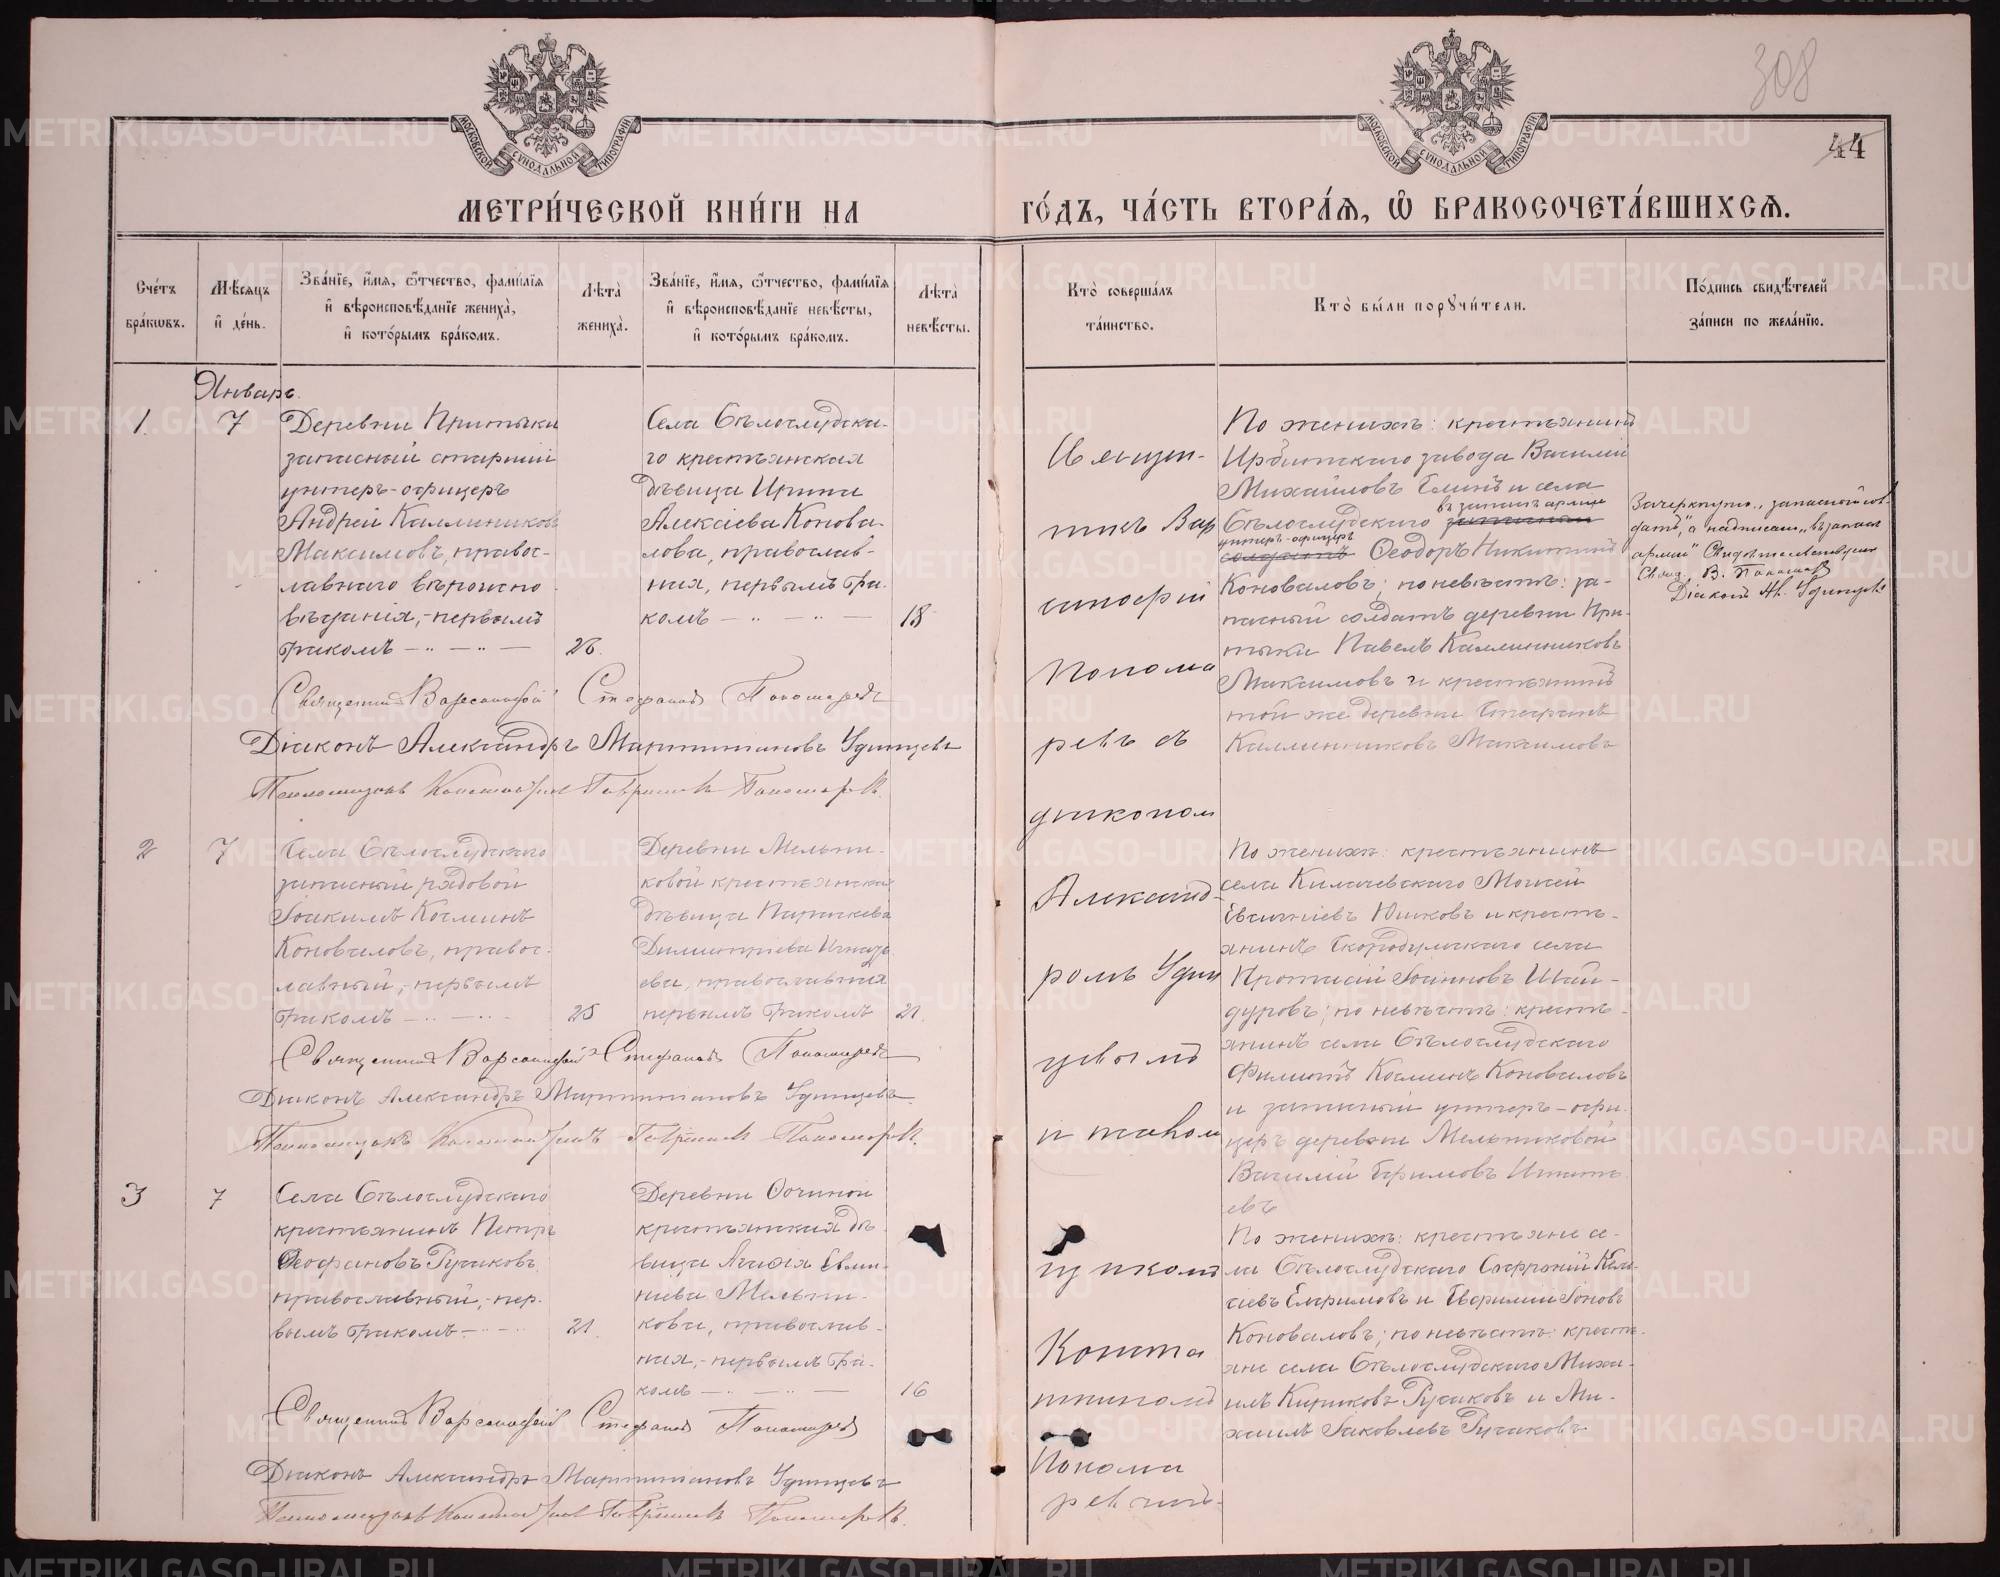 308
44
МОСКОВСКОЙ СѴНОДАЛЬНОЙ ТИПОГРАФІИ
МОСКОВСКОЙ СѴНОДАЛЬНОЙ ТИПОГРАФІИ
МЕТРИ́ЧЕСКОЙ КНИ́ГИ НА
ГО́ДЪ, ЧА́СТЬ ВТОРА́Ѧ, Ѡ҆ БРАКОСОЧЕТА́ВШИХСѦ.
Сче́тъ
бра́кѡвъ.
Мѣ́сѧцъ
и҆ де́нь.
Зва́нїе, и҆́мѧ, ѻ҆́тчество, фами́лїѧ
и҆ вѣроисповѣ́данїе жениха̀,
и҆ кото́рымъ бра́комъ.
Лѣта̀
жениха̀.
Зва́нїе, и҆́мѧ, ѻ҆́тчество, фами́лїѧ
и҆ вѣроисповѣ́данїе невѣ́сты,
и҆ кото́рымъ бра́комъ.
Лѣта̀
невѣ́сты.
Кто̀ соверша́лъ
та́инство.
Кто̀ бы́ли порꙋчи́тели.
По́дпись свидѣ́телей
за́писи по жела́нїю.
Январь.
1.
7
Деревни Притыки
запасный старшій
унтеръ-офицеръ
Андрей Каллиниковъ
Максимовъ, правос-
лавнаго вѣроиспо
вѣданія,-первымъ
бракомъ — „ — „ —
26.
Села Бѣлослудска-
го крестьянская
дѣвица Ирина
Алексіева Конова-
лова, православ-
ная, первымъ бра-
комъ — „ — „ —
18
Священ-
никъ Вар
сонофій
Понома
ревъ съ
діакономъ
Александ-
ромъ Удин
цевымъ
и псалом
щикомъ
Конста
нтиномъ
Понома
ревымъ.
По женихѣ: крестьянинъ
Ирбитскаго завода Василій
Михайловъ и села
въ запасѣ арміи
Бѣлослудскаго запасный
унтеръ-офицеръ
солдатъ Ѳеодоръ Никитинъ
Коноваловъ; по невѣстѣ: за-
пасный солдатъ деревни При-
тыки Павелъ Каллинниковъ
Максимовъ и крестьянинъ
той же деревни Стефанъ
Каллинниковъ Максимовъ
Зачеркнуто „запасной сол
датъ", а надписан „въ запасѣ
арміи" Свидѣтельствуем
Свящ. В. Пономарев
Діаконъ Ал. Удинцевъ
Священник Варсонофій Стефанов Пономарев
Діаконъ Александръ Мартиніановъ Удинцевъ
Псаломщикъ Константинъ Гаврилов Пономарев.
2
7
Села Бѣлослудскаго
запасный рядовой
Іоакимъ Косминъ
Коноваловъ, правос-
лавный,-первымъ
бракомъ — „ — „ —
25
Деревни Мельни-
ковой крестьянская
дѣвица Параскева
Димитріева Игнать
ева, православная
первымъ бракомъ
21.
По женихѣ: крестьянинъ
села Килачевскаго Моисей
Евсигніевъ Юшковъ и кресть-
янинъ Скородумскаго села
Протасій Іоанновъ Шай-
дуровъ; по невѣстѣ: кресть-
янинъ села Бѣлослудскаго
Филиппъ Косминъ Коноваловъ
и запасный унтеръ-офи-
церъ деревни Мельниковой
Василій Ефимовъ Игнать
евъ
Священник Варсонофій Стефанов Пономарев
Діаконъ Александръ Мартиніановъ Удинцевъ.
Псаломщикъ Константинъ Гаврилов Пономарев.
3
7
Села Бѣлослудскаго
крестьянинъ Петръ
Ѳеофановъ Русаковъ
православный,-пер-
вымъ бракомъ — „ —
21.
Деревни Ѳочиной
крестьянская дѣ-
вица Агафія Евме-
ніева Мельни-
кова, православ-
ная,-первымъ бра-
комъ — „ — „ —
16
По женихѣ: крестьяне се-
ла Бѣлослудскаго Софроній
Ефимовъ и Іоновъ
Коноваловъ; по невѣстѣ: кресть-
яне села Бѣлослудскаго Миха-
илъ Кириковъ Русаковъ и Ми-
хаилъ Іаковлевъ Русаковъ
Священник Варсонофій Стефанов Пономарев
Діаконъ Александръ Мартиніановъ Удинцевъ
Псаломщикъ Константинъ Гаврилов Пономарев.
METRIKI.GASO-URAL.RU